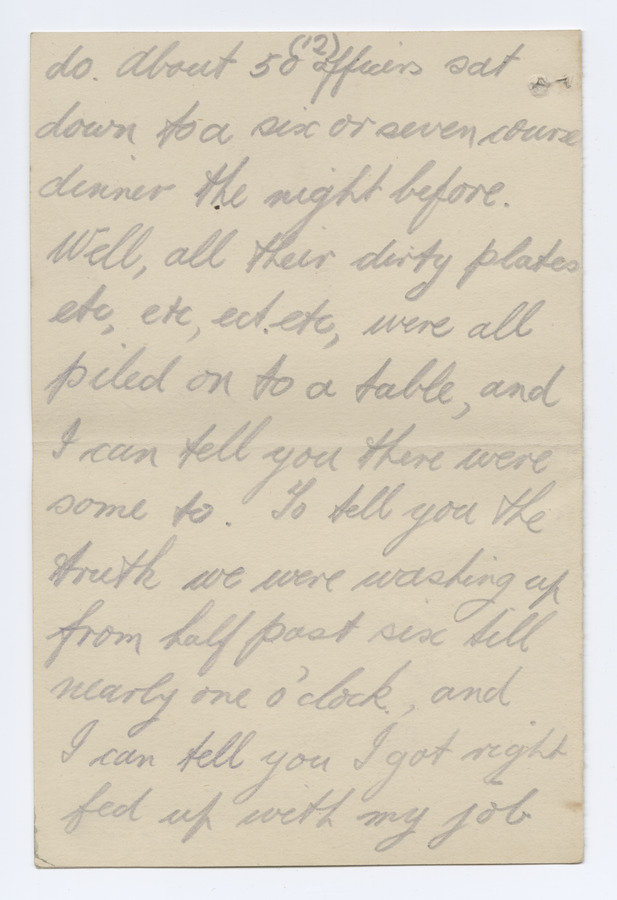 (12)
do. About 50 officers sat
down to a six or seven course
dinner the night before.
Well, all their dirty plates
etc, etc, ect. etc, were all
piled on to a table, and
I can tell you there were
some to. To tell you the
truth we were washing up
from half past six till
nearly one o'clock., and
I can tell you I got right
fed up with my job